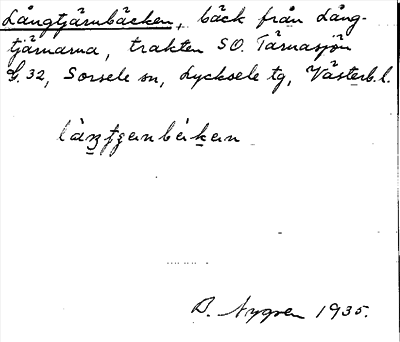 Långtjärnbäcken, bäck från Lång-
tjärnarna, trakten SO. Tärnasjön
G. 32, Sorsele sn, Lycksele tg, Västerb. l.
B. Nygren 1935.